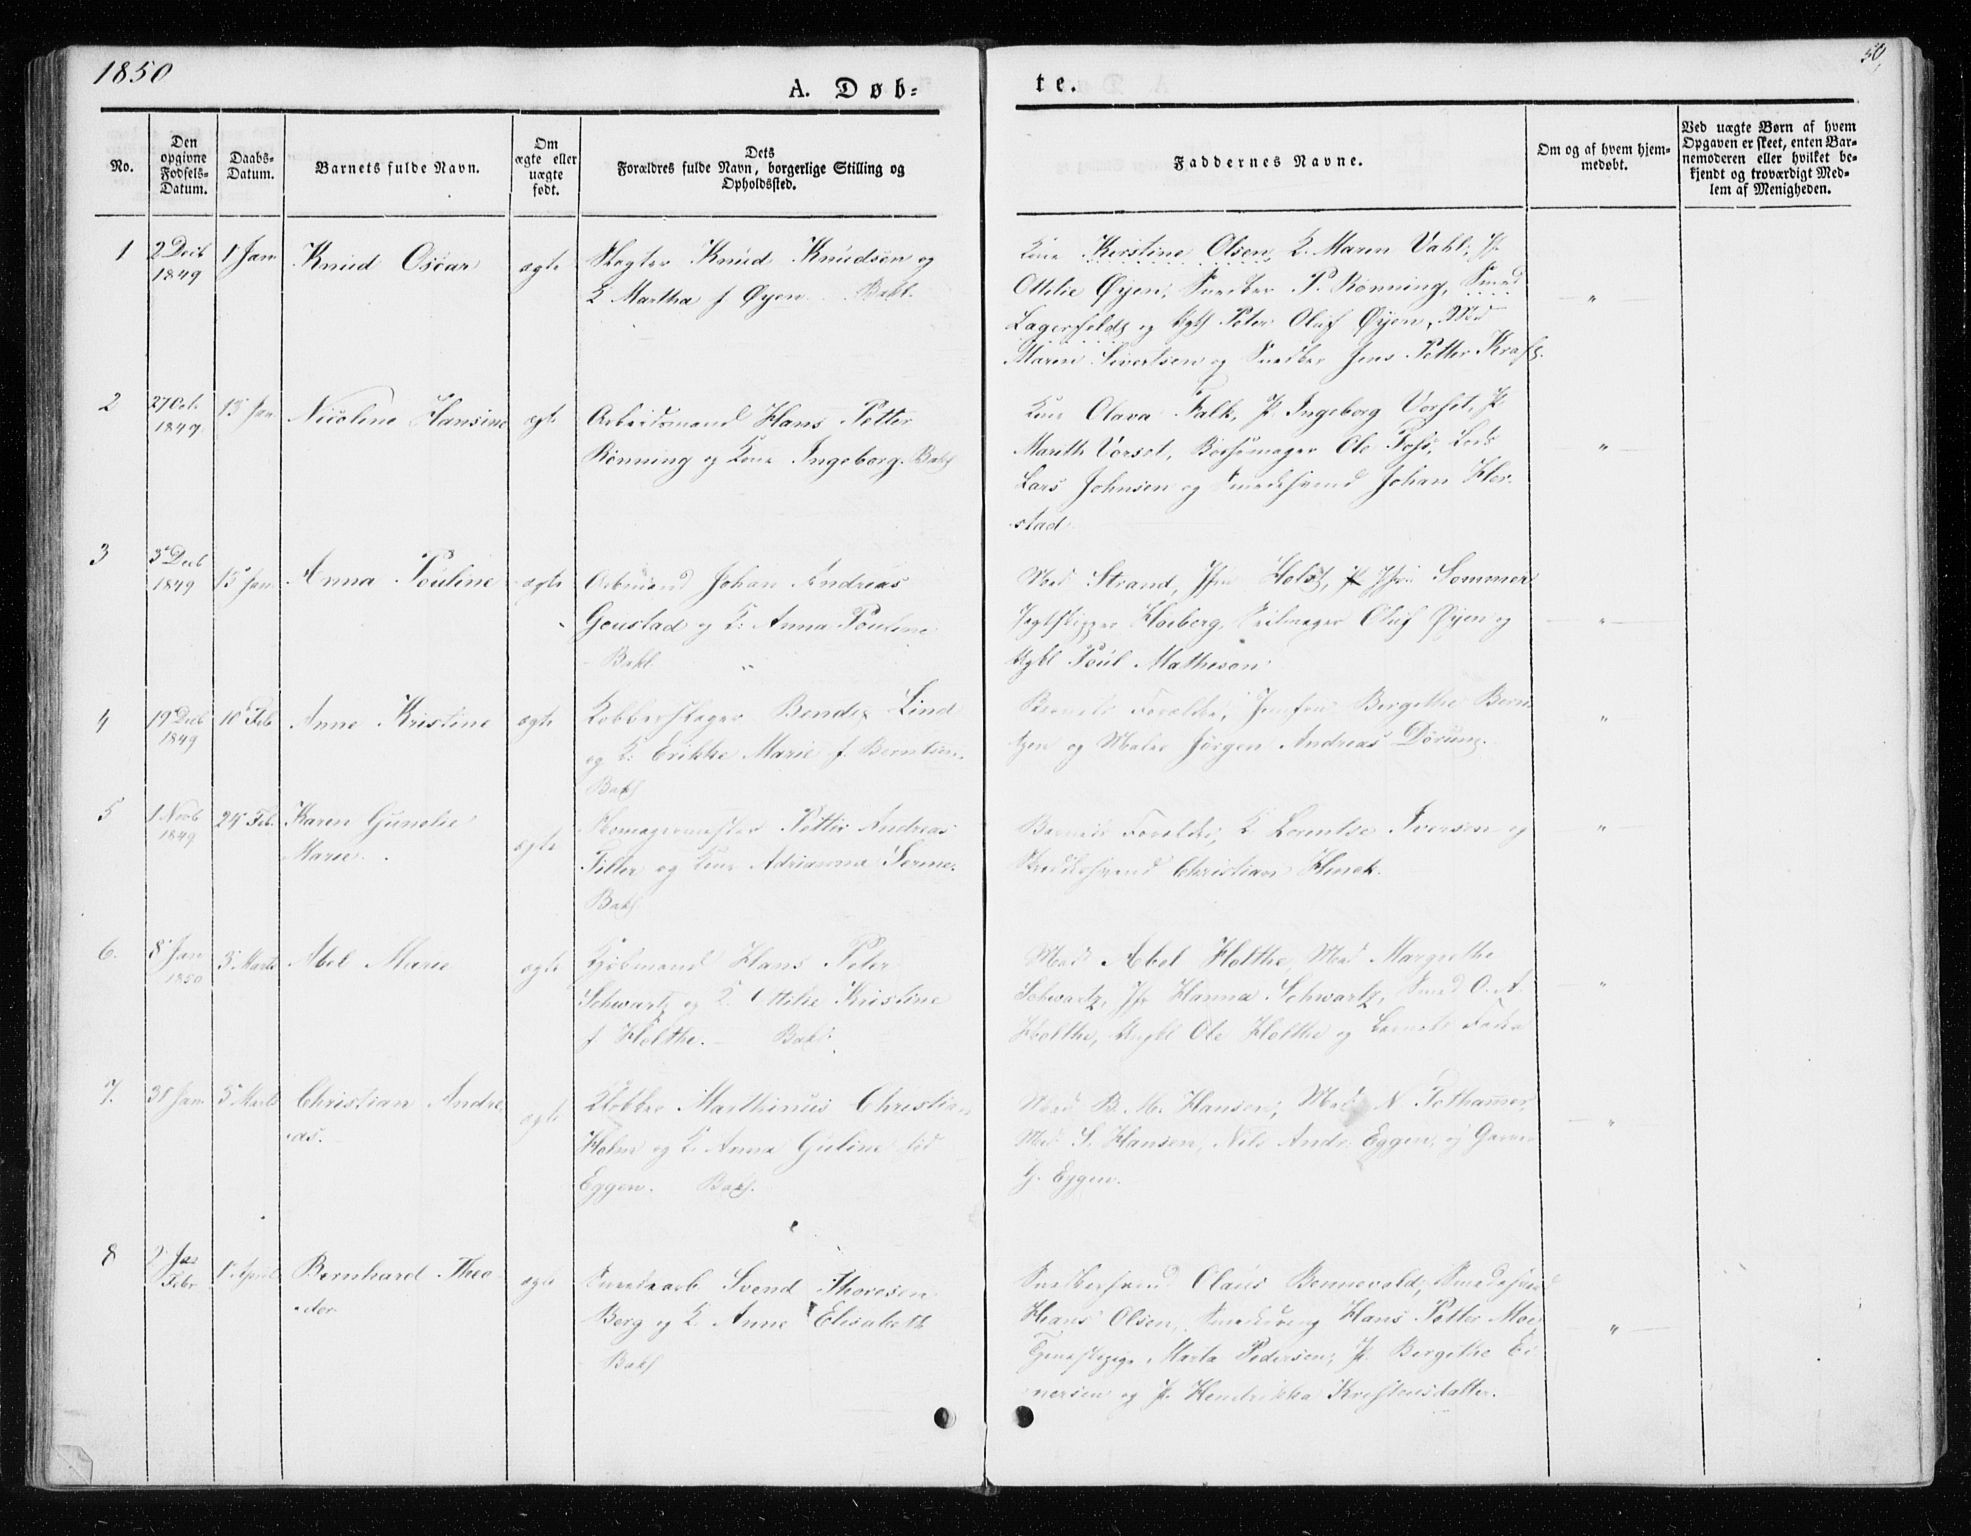 1850
50,
A. Døb-
te.
No.
Den opgivne Fødsels-Datum.
Daabs-Datum.
Barnets fulde Navn.
Om ægte eller uægte født.
Dets Forældres fulde Navn, borgerlige Stilling og Opholdssted.
Faddernes Navne.
Om og af hvem hjem-medøbt.
Ved uægte Børn af hvem Opgaven er skeet, enten Bar-nemoderen eller hvilket be-kjendt og troværdigt Med-lem af Menigheden.
1
2 Decb 1849
1 Jan
Knud Oscar
ægte
Slagter Knud Knudsen og
K Martha f Øyen. Bakl.
Kone Kerstine Olsen, K. Maren Vahl, P
Ottilie Øyen, Snedker P. Rønning, Smed
og Peter Oluf Øyen, Md
Maren Sivertsen og Snedker Jens Petter Kraft.
"
2
27 Oct. 1849
13 Jan
Nicoline Hansine
ægte
Arbeidsmand Hans Petter
Rønning og Kone Ingeborg. Bakl
Kone Olava Falk, P. Ingeborg Vorset, P
Marith Vorset, Bøssemager Ole Foss, Lods
Lars Johnsen og Smedesvend Johan Flor-
stad
"
3
3 Decb 1849
13 Jan
Anna Pouline
ægte
Arbmand Johan Andreas
Goustad og K. Anna Pouline
Bakl.
Mad Strand, Jfru Holst, Jfru Sommer
Jagtskipper Hoiberg, Seilmager Oluf Øyen og
Ugkl Poul Mathesen
"
4
19 Decb 1849
10 Feb
Anne Kristine
ægte
Kobberslager Bendix Lind
og K. Erikke Marie f. Berntsen.
Bakl
Barnets Forældre, Jomfru Bergithe Bern
tzen og Maler Jørgen Andreas Dørum.
"
5
1 Novb 1849
24 Feb.
Karen Gunelie
Marie.
ægte
Skomagermester Petter Andreas
Tiller og Kone Adrianna
Bakl
Barnets Forældre, K Lorentse Iversen og
Christian
"
6.
8 Jan 1850
3 Marts
Abel Marie
ægte
Kjøbmand Hans Peter
Schwartz og K. Ottilie Kristine
f Holthe. Bakl.
Mad Abel Holthe, Mad Margrethe
Schwartz, Jfr Hanna Schwartz, Smed O. A.
Holthe, Ugkl Ole Holthe og Barnets Fader
"
7.
31 Jan
3 Marts
Christian Andre
as.
ægte
Klokker Marthinus Christian
Holm og K. Anna Guline fød
Eggen. Bakl.
Mad B. M. Hansen, Mad N.
Mad S. Hansen, Nils Andr. Eggen, og Garver
G. Eggen.
"
8
2 Febr
1 April
Bernhard Theo-
dor
ægte
Svend Thoresen
Berg og K. Anne Elisabeth
Bakl
Snedkersvend Olaus Bennevold, Smedesvend
Hans Olsen, Hans Petter Moe
Marta Pedersen, P. Bergithe Ei-
nersen og P. Hendrikka Kristensdatter.
"